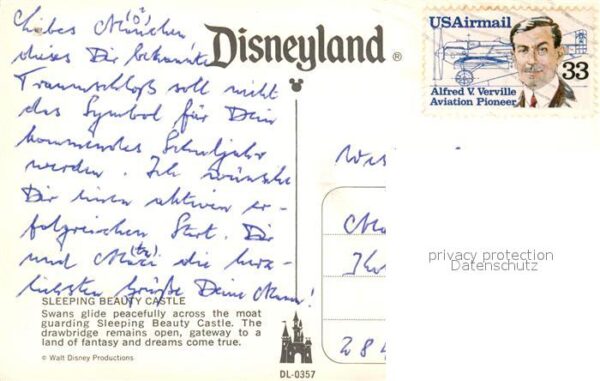 Liebes
dieses Dir bekannte
Traumschloß soll nicht
das Symbol für Dein
kommendes Schuljahr
werden. Ich wünsche
Dir einen aktiven er-
folgreichen Start. Dir
und die herz-
lichsten Grüße Deine
Disneyland®
USAirmail
33
Alfred V. Verville
Aviation Pioneer
privacy protection
Datenschutz
SLEEPING BEAUTY CASTLE
Swans glide peacefully across the moat
guarding Sleeping Beauty Castle. The
drawbridge remains open, gateway to a
land of fantasy and dreams come true.
© Walt Disney Productions
DL-0357